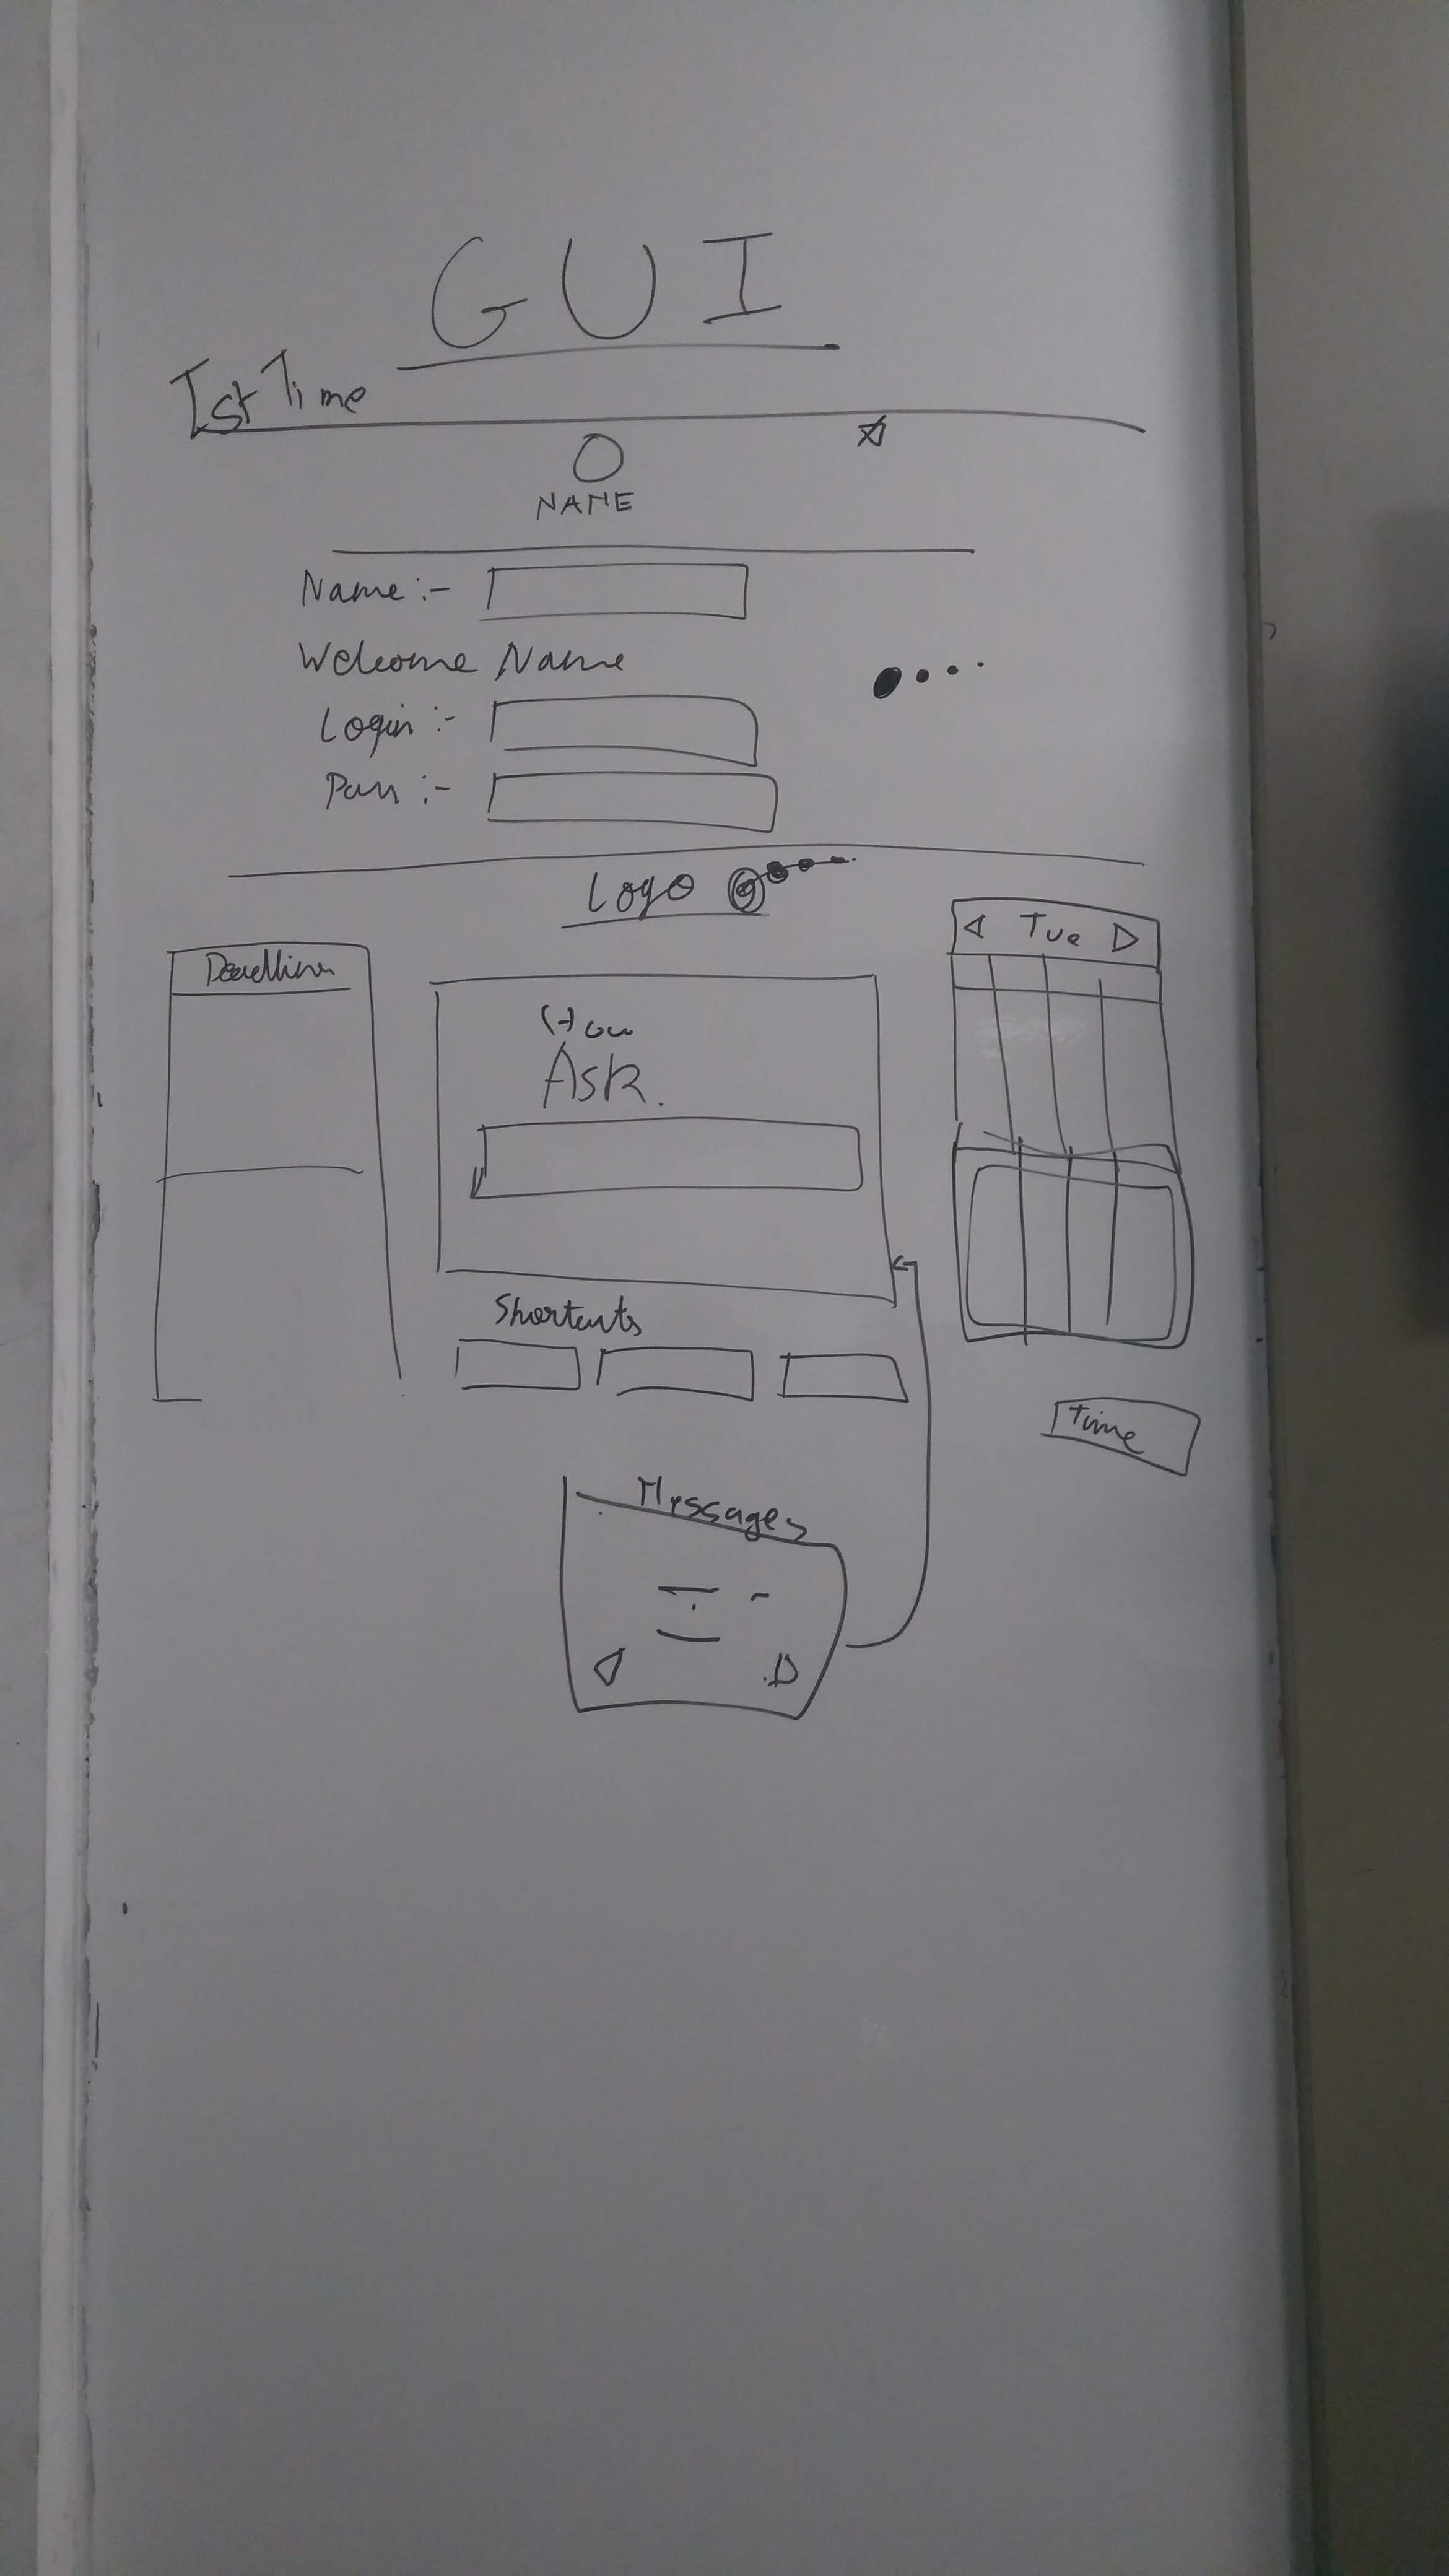 GUI
Ist Time
NAME
Name :-
Welcome Name
Login :-
Pass :-
Logo
Deadlines
Tue
How
Ask.
Shortcuts
Time
Messages